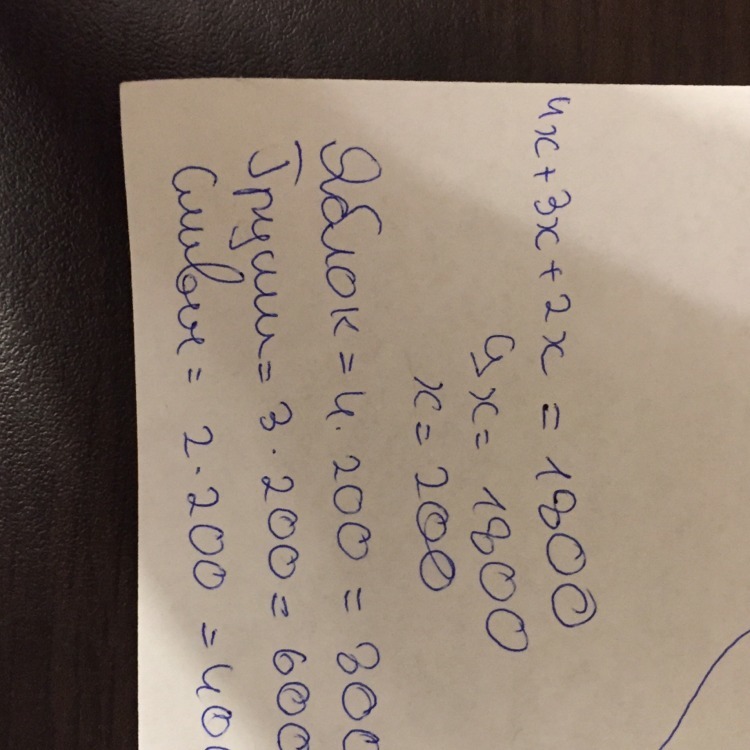 4x + 3x + 2x = 1800
9x = 1800
x = 200
Яблок = 4 · 200 = 800
Груши = 3 · 200 = 600
Сливы = 2 · 200 = 400